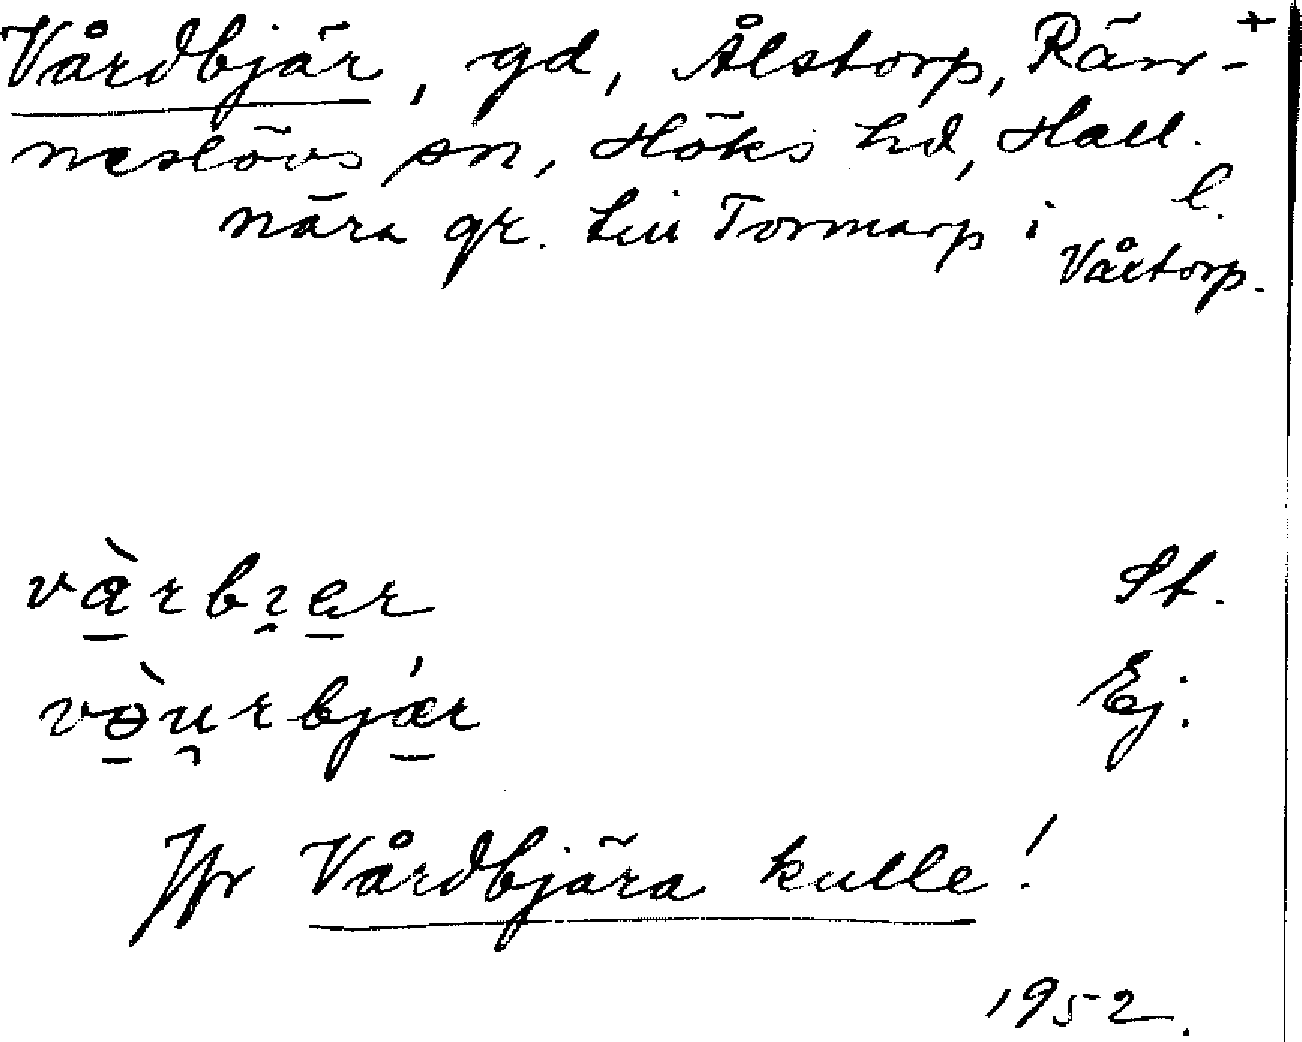 Vårdbjär, gd, Ålstorp, Rän- +
neslövs sn, Höks hd, Hall.
nära gr. till Tormarp i l.
Våxtorp.
vàrbɪ̯er St.
vəùrbjǽr Ej.
Jfr Vårdbjära kulle!
1952.